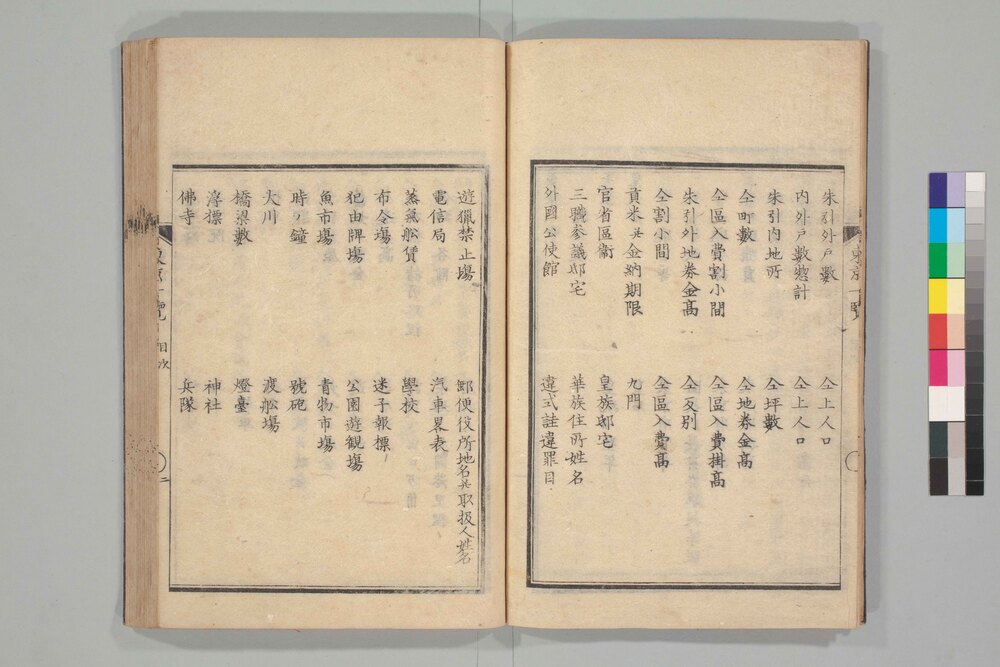 朱引外戸數　仝上人口
内外戸數惣計　仝上人口
朱引内地所　仝坪數
仝町數　仝地券金髙
仝區入費割小間　仝區入費掛髙
朱引外地券金髙　仝反别
仝割小間　仝區入費髙
貢米并金納期限　九門
官省區衙　皇族邸宅
三職參議邸宅　華族住所姓名
外國公使館　違式詿違罪目
遊獵禁止塲　郵便役所地名并取扱人姓名
電信局　汽車畧表
蒸氣舩賃　學校
布令塲　迷子報標
犯由牌塲　公園遊観塲
魚市塲　青物市塲
時鐘　號砲
大川　渡舩塲
橋梁數　燈臺
浮標　神社
佛寺　兵隊
東京一覽　目次　二